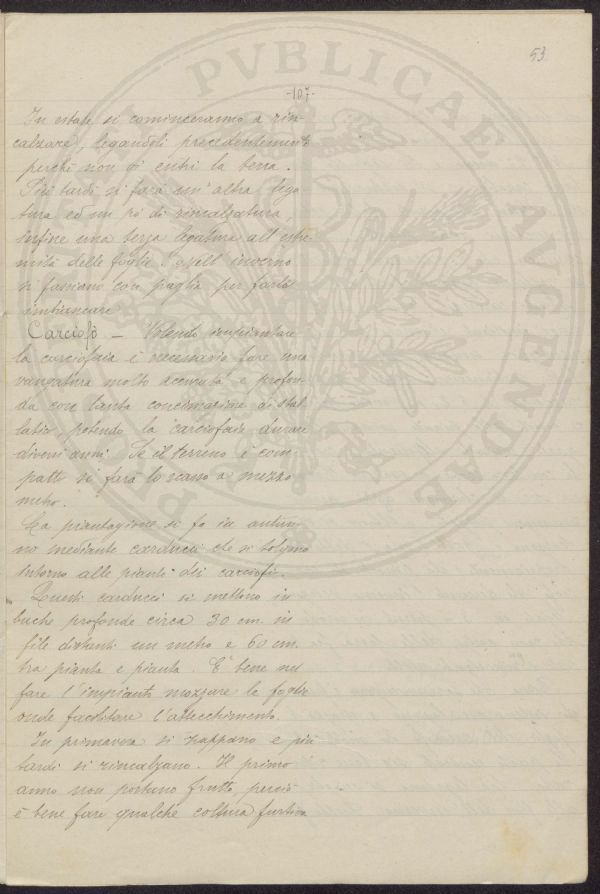 53
-107-
In estate si cominceranno a rin-
calzare, legandoli precedentemente
perchè non vi entri la terra.
Più tardi si farà un'altra lega
tura ed un pò di rincalzatura,
infine una terza legatura all'estre-
mità delle foglie. nell'inverno
si fasciano con paglia per farli
imbiancare
Carciofo — Volendo impiantare
la carciofaia è necessario fare una
vangatura molto accurata e profon-
da con tanta concimazione di stal-
latico, potendo la carciofaia durare
diversi anni. Se il terreno è com-
patto si farà lo scasso a mezzo
metro.
La piantagione si fa in autun-
no mediante carducci che si tolgono
intorno alle piante dei carciofi.
Questi carducci si mettono in
buche profonde circa 30 cm. in
file distanti un metro e 60 cm.
tra pianta e pianta. E' bene nel
fare l'impianto mozzare le foglie
onde facilitare l'attecchimento.
In primavera si zappano e più
tardi si rincalzano. Il primo
anno non portano frutto, perciò
è bene fare qualche coltura furtiva
PVBLICAE
AVGENDAE